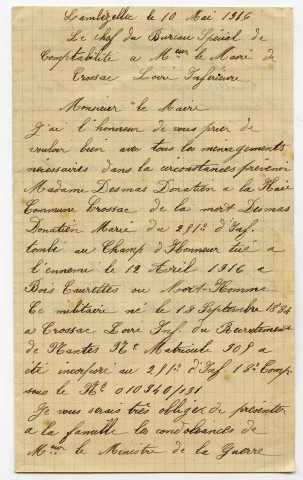 Lambézellec le 10 Mai 1916
Le Chef du Bureau Spécial de
Comptabilité a Mr le Maire de
Crossac Loire Inférieure
Monsieur le Maire
J'ai l'honneur de vous prier de
vouloir bien avec tous les menagements
nécessaires dans la circonstances prévenir
Madame Desmas Donatien a la Haie
Commune Crossac de la mort Desmas
Donatien Marie du 291e d'Inf.
tombé au Champ d'Honneur tué a
l'ennemi le 12 Avril 1916 a
Bois Caurettes ou Mort-Homme
Ce militaire né le 18 Septembre 1884
a Crossac Loire Inf. du Recrutement
de Nantes No Matricule 309 a
été incorporé au 291e d'Inf. 18e Comp.
sous le No 010340/131
Je vous serais très obliger de présenter
a la famille les condoléances de
Mr le Ministre de la Guerre